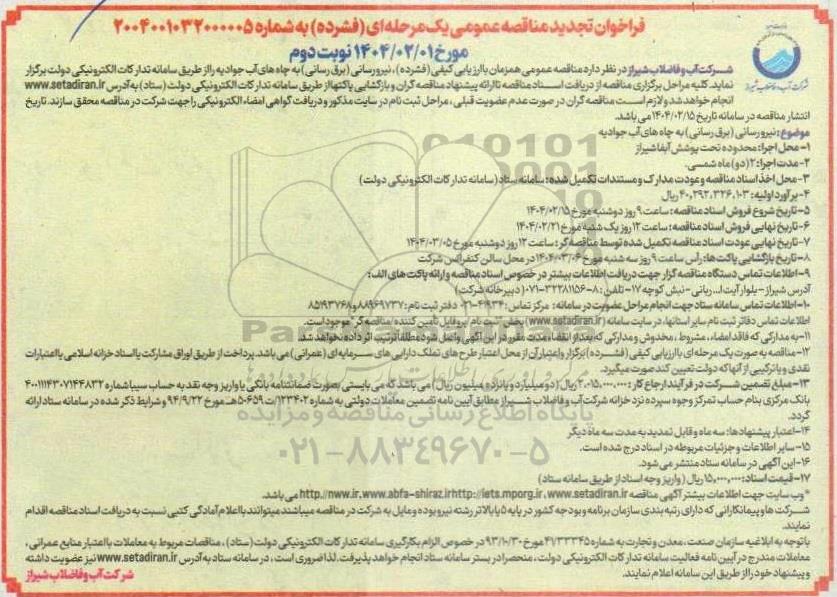 فراخوان تجدید مناقصه عمومی یک مرحله‌ای (فشرده) به شماره ۲۰۰۴۰۰۱۰۳۲۰۰۰۰۰۵
مورخ ۱۴۰۴/۰۲/۰۱ نوبت دوم
شرکت آب و فاضلاب شیراز
شرکت آب و فاضلاب شیراز در نظر دارد مناقصه عمومی همزمان با ارزیابی کیفی (فشرده)، نیرورسانی (برق رسانی) به چاه های آب جوادیه را از طریق سامانه تدارکات الکترونیکی دولت برگزار
نماید. کلیه مراحل برگزاری مناقصه از دریافت اسناد مناقصه تا ارائه پیشنهاد مناقصه گران و بازگشایی پاکتها از طریق سامانه تدارکات الکترونیکی دولت (ستاد) به آدرس www.setadiran.ir
انجام خواهد شد و لازم است مناقصه گران در صورت عدم عضویت قبلی، مراحل ثبت نام در سایت مذکور و دریافت گواهی امضاء الکترونیکی را جهت شرکت در مناقصه محقق سازند. تاریخ
انتشار مناقصه در سامانه تاریخ ۱۴۰۴/۰۲/۱۵ می باشد.
موضوع: نیرورسانی (برق رسانی) به چاه های آب جوادیه
۱- محل اجرا: محدوده تحت پوشش آبفا شیراز
۲- مدت اجرا: ۲ (دو) ماه شمسی.
۳- محل اخذ اسناد مناقصه و عودت مدارک و مستندات تکمیل شده: سامانه ستاد (سامانه تدارکات الکترونیکی دولت)
۴- برآورد اولیه: ۴۰,۲۹۲,۳۲۶,۱۰۳ ریال
۵- تاریخ شروع فروش اسناد مناقصه: ساعت ۹ روز دوشنبه مورخ ۱۴۰۴/۰۲/۱۵
۶- تاریخ نهایی فروش اسناد مناقصه: ساعت ۱۲ روز یک شنبه مورخ ۱۴۰۴/۰۲/۲۱
۷- تاریخ نهایی عودت اسناد مناقصه تکمیل شده توسط مناقصه گر: ساعت ۱۲ روز دوشنبه مورخ ۱۴۰۴/۰۳/۰۵
۸- تاریخ بازگشایی پاکت ها: رأس ساعت ۹ روز سه شنبه مورخ ۱۴۰۴/۰۳/۰۶ در محل سالن کنفرانس شرکت
۹- اطلاعات تماس دستگاه مناقصه گزار جهت دریافت اطلاعات بیشتر در خصوص اسناد مناقصه و ارائه پاکت های الف:
آدرس شیراز - بلوار آیت ا... ربانی - نبش کوچه ۱۷ - تلفن: ۸-۳۲۲۸۱۱۵۶-۰۷۱ (دبیرخانه شرکت)
۱۰- اطلاعات تماس سامانه ستاد جهت انجام مراحل عضویت در سامانه: مرکز تماس: ۴۱۹۳۴-۰۲۱ دفتر ثبت نام: ۸۸۹۶۹۷۳۷ و ۸۵۱۹۳۷۶۸
اطلاعات تماس دفاتر ثبت نام سایر استانها، در سایت سامانه (www.setadiran.ir) بخش "ثبت نام/پروفایل تامین کننده/مناقصه گر" موجود است.
۱۱- به مدارکی که فاقد امضاء، مشروط، مخدوش و مدارکی که بعد از انقضاء مدت مقرر در این آگهی واصل شود مطلقا ترتیب اثر داده نخواهد شد.
۱۲- مناقصه به صورت یک مرحله ای با ارزیابی کیفی (فشرده) برگزار و اعتبار آن از محل اعتبار طرح های تملک دارایی های سرمایه ای (عمرانی) می باشد. پرداخت از طریق اوراق مشارکت یا اسناد خزانه اسلامی یا اعتبارات
نقدی و یا ترکیبی از آنها که دولت تعیین کند صورت میگیرد.
۱۳- مبلغ تضمین شرکت در فرآیند ارجاع کار: ۲,۰۱۵,۰۰۰,۰۰۰ ریال (دو میلیارد و پانزده میلیون ریال) می باشد که می بایستی بصورت ضمانتنامه بانکی یا واریز وجه نقد به حساب سیبا شماره ۴۰۰۱۱۱۴۳۰۷۱۴۴۸۳۲
بانک مرکزی بنام حساب تمرکز وجوه سپرده نزد خزانه شرکت آب و فاضلاب شیراز مطابق آیین نامه تضمین معاملات دولتی به شماره ۱۲۳۴۰۲/ت۵۰۶۵۹هـ مورخ ۹۴/۹/۲۲ و شرایط ذکر شده در سامانه ستاد ارائه
گردد.
۱۴- اعتبار پیشنهادها: سه ماه و قابل تمدید به مدت سه ماه دیگر
۱۵- سایر اطلاعات و جزئیات مربوطه در اسناد درج شده است.
۱۶- این آگهی در سامانه ستاد منتشر می شود.
۱۷- قیمت اسناد: ۱۵,۰۰۰,۰۰۰ ریال (واریز وجه اسناد از طریق سامانه ستاد)
* وب سایت جهت اطلاعات بیشتر آگهی مناقصه http://nww.ir.www.abfa-shiraz.irhttp://iets.mporg.ir.www.setadiran.ir می باشد.
شرکت ها و پیمانکارانی که دارای رتبه بندی سازمان برنامه و بودجه کشور در پایه ۵ یا بالاتر رشته نیرو بوده و مایل به شرکت در مناقصه میباشند میتوانند با اعلام آمادگی کتبی نسبت به دریافت اسناد مناقصه اقدام
نمایند.
با توجه به ابلاغیه سازمان صنعت، معدن و تجارت به شماره ۴۱/۳۳۳۴۵ مورخ ۹۳/۱۰/۳۰ در خصوص الزام بکارگیری سامانه تدارکات الکترونیکی دولت (ستاد)، مناقصات مربوط به معاملات با اعتبار منابع عمرانی،
معاملات مندرج در آیین نامه فعالیت سامانه تدارکات الکترونیکی دولت، منحصرا در بستر سامانه ستاد انجام خواهد پذیرفت. لذا ضروری است، در سامانه ستاد به آدرس www.setadiran.ir نیز عضویت داشته
و پیشنهاد خود را از طریق این سامانه اعلام نمایند.
شرکت آب و فاضلاب شیراز
پایگاه اطلاع رسانی مناقصه و مزایده
۰۲۱-۸۸۳۴۹۶۷۰-۵